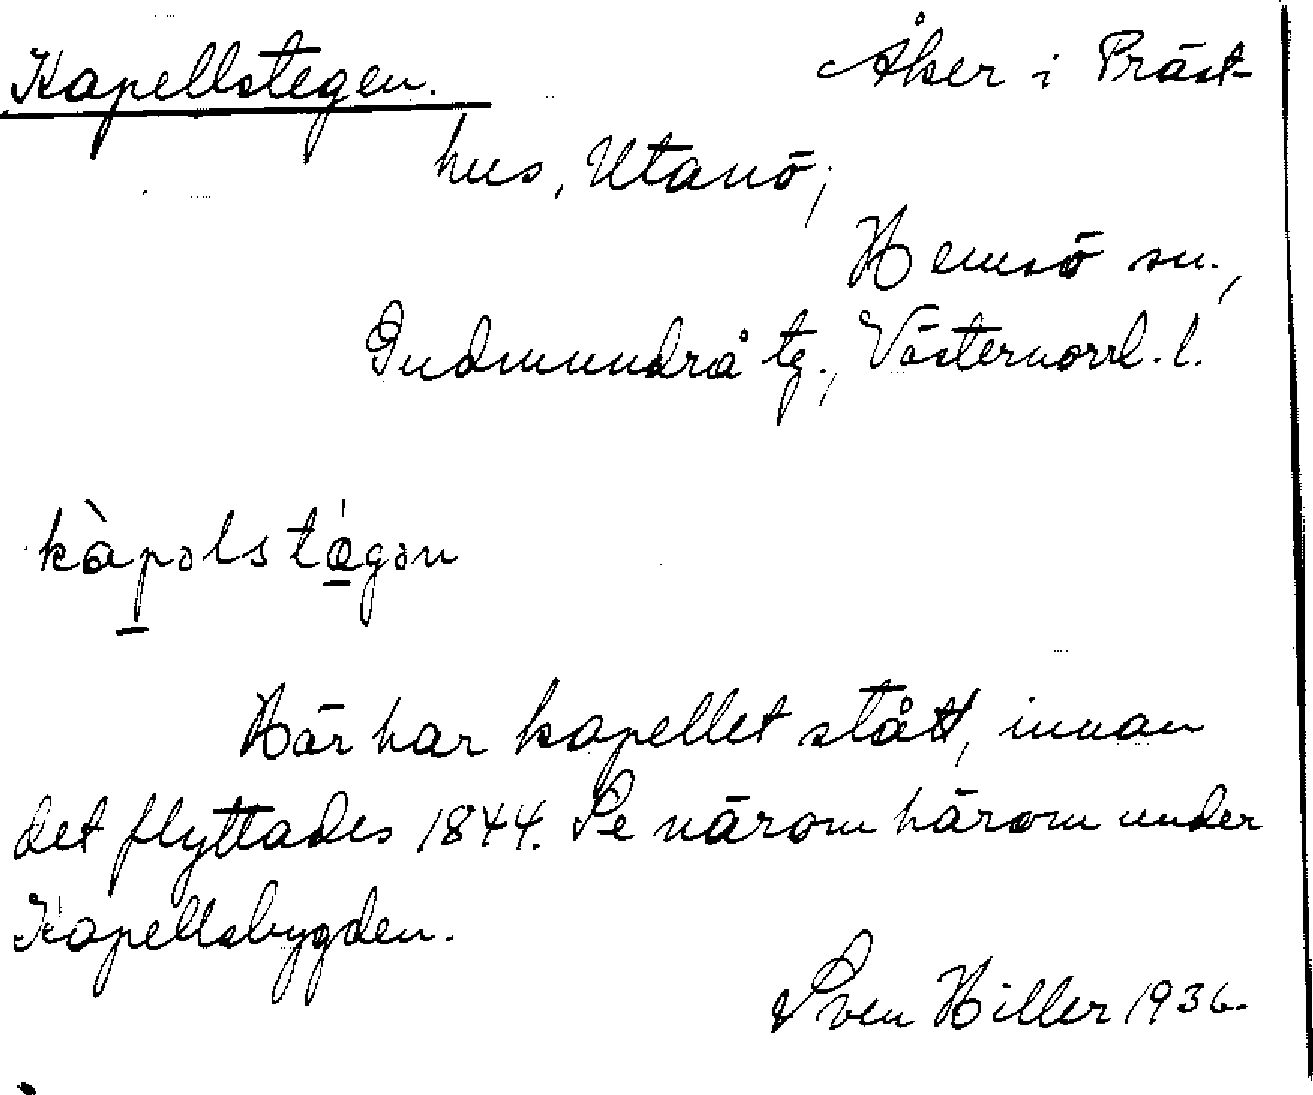 Kapellstegen. Åker i Präst-
hus, Utanö;
Hemsö sn.,
Gudmundrå tg., Västernorrl. l.
kàpəlstágən
Här har kapellet stått, innan
det flyttades 1844. Se närom härom under
Kapellsbygden.
Sven Hiller 1936.